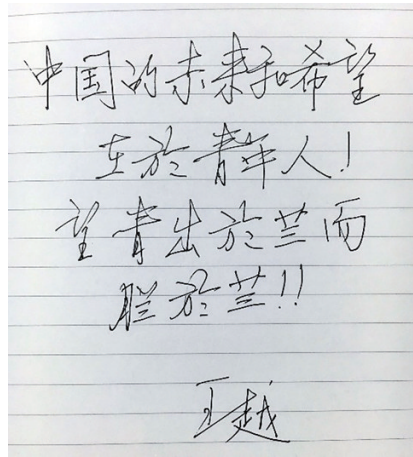 中国的未来和希望
在於青年人!
望青出於兰而
胜於兰!!
王越